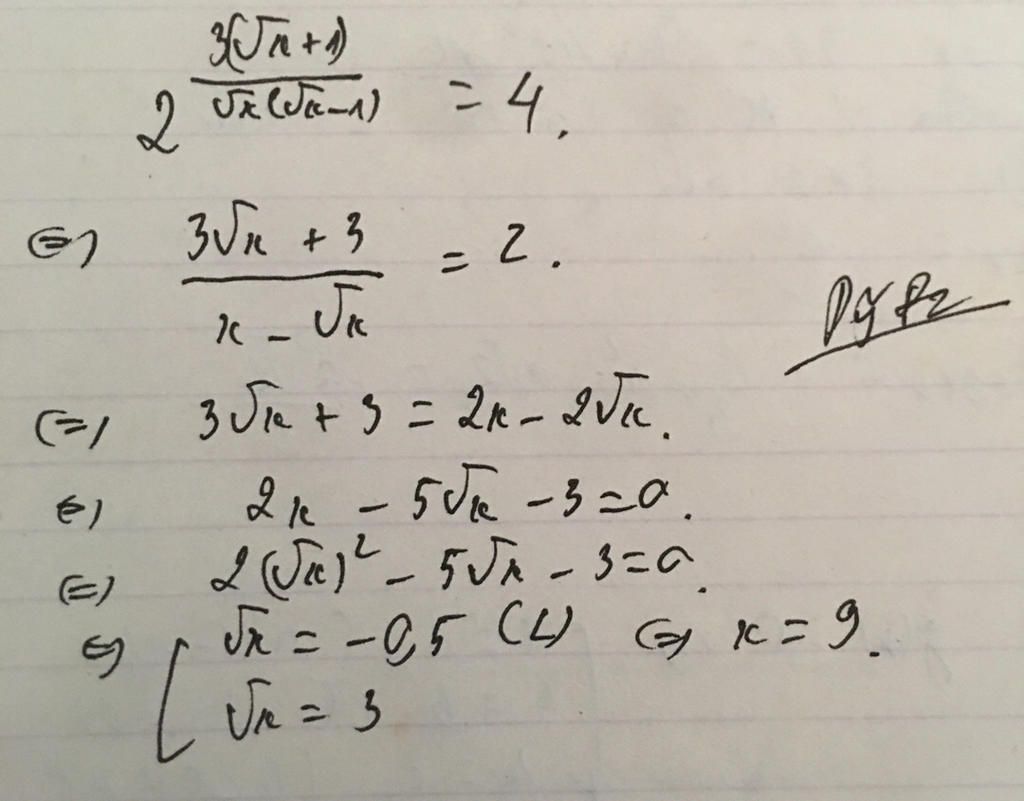 2^{\frac{3(\sqrt{x}+1)}{\sqrt{x}(\sqrt{x}-1)}} = 4.
⇔ \frac{3\sqrt{x}+3}{x-\sqrt{x}} = 2.
⇔ 3√x + 3 = 2x - 2√x.
⇔ 2x - 5√x - 3 = 0.
⇔ 2(√x)² - 5√x - 3 = 0.
⇔ [ √x = -0,5 (L) ⇔ x = 9.
√x = 3